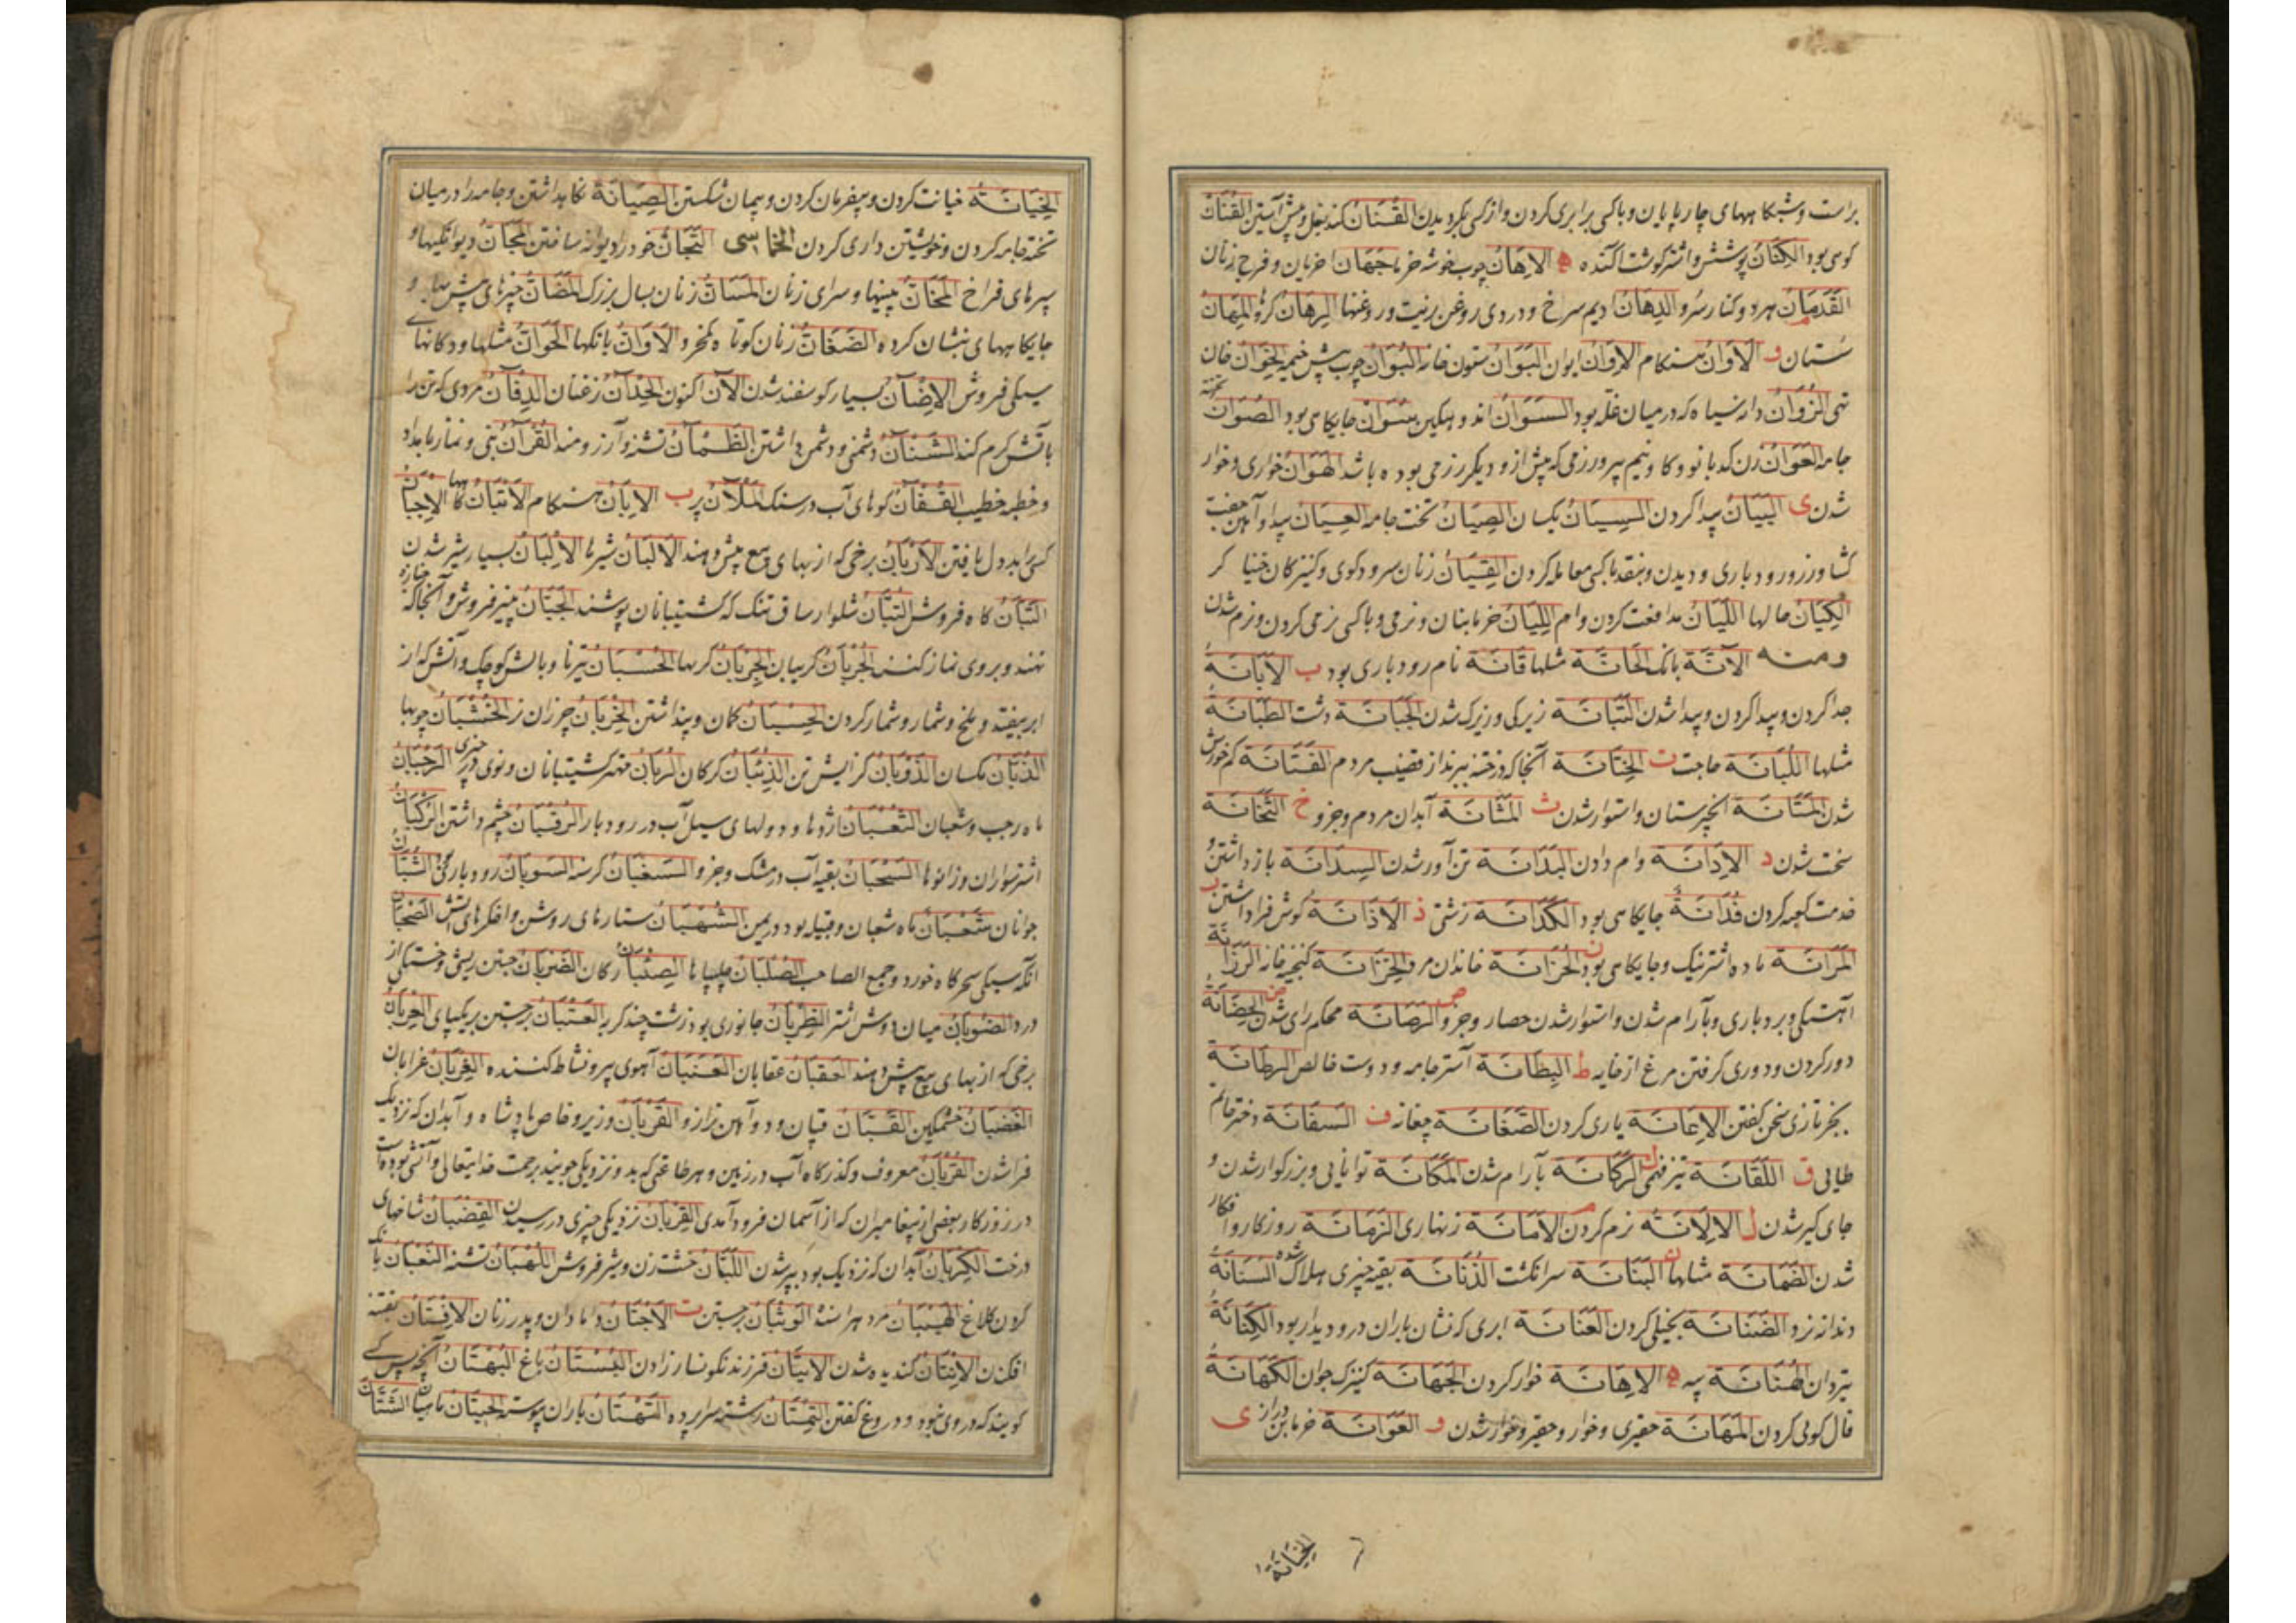 براست وشبکاههای چارپایان وباکسی برابری کردن وازکسی بگردیدن القُنَان کندبغل وپیش آستین القُنَان
کوهی بود الکِنَان پوشش واشتر کوشت اکنده ه الاِهَان چوب خوشه خرما جَهَان اخریان وفرج زنان
القَدَمَان هردو کنار سرو الدِهَان ادیم سرخ ودردی روغن زیت وروغنها الرِهَان کروها المِهَان
سستان و الاَوَان هنکام الاِوَان ایوان البَوَان ستون خانه البُوَان چوب پیش خیمه الخِوَان خان
تهی الزُوَان دانه سیاه که درمیان غله بود السَوَان اندوهکین سُوَان جایکاهی بود الصُوَان تخته
جامه العَوَان زن کدبانو وکاو نیم پیر ورزمی که پیش ازو دیکر رزمی بوده باشد الهَوَان خواری وخوار
شدن ی البَیَان پیدا کردن السِیَان یکسان الصِیَان تخت جامه العِیَان پیدا وآهن جفت
کشاورز ورودباری ودیدن وبنقد باکسی معامله کردن القِیَان زنان سرودکوی وکنیزکان خنیاکر
الکِیَان حالها اللَیَان مدافعت کردن وام اللِیَان خرمابنان ونرمی وباکسی نرمی کردن ونرم شدن
ومنه الآنَة بانک الحَانَة مثلها قَانَة نام رودباری بود ب الاِبَانَة
جدا کردن وپیدا کردن وپیدا شدن التَبَانَة زیرکی وزیرک شدن الجَبَانَة دشت الطَبَانَة
مثلها اللُبَانَة حاجت ت الخِتَانَة آنجا که ختنه برند از قضیب مردم القَتَانَة کم خورش
شدن المَتَانَة انجیرستان واستوار شدن ث المَثَانَة آبدان مردم وجزو خ الثَخَانَة
سخت شدن د الاِدَانَة وام دادن البَدَانَة تن آور شدن السِدَانَة بازداشتن
خدمت کعبه کردن فُدَانَة جایکاهی بود الکَدَانَة زشتی ذ الاَذَانَة کوش فراداشتن ر
المَرَانَة ماده اشتر نیک وجایکاهی بود ز الحُزَانَة خاندان مرد الخِزَانَة کنجینه خانه الرَزَانَة
آهستکی وبردباری وبآرام شدن واستوار شدن حصار وجزو ص الرَصَانَة محکم رای شدن ض الحِضَانَة
دور کردن ودوری کرفتن مرغ ازخایه ط البِطَانَة آستر جامه ودوست خالص الرِطَانَة
بجز تازی سخن کفتن الاِعَانَة یاری کردن الصَغَانَة چغانه ف السَفَانَة دختر حاتم
طایی ق اللَقَانَة تیزفهمی ک الرَکَانَة بآرام شدن المَکَانَة توانایی وبزرکوار شدن و
جای کیر شدن ل الاِلَانَة نرم کردن م الاَمَانَة زنهاری الزَمَانَة روزکار وافکار
شدن الضَمَانَة مثلها ن البَنَانَة سرانکشت الذُنَانَة بقیه چیزی هلاک شده السَنَانَة
دندانه نرد الضَنَانَة بخیلی کردن العَنَانَة ابری که نشان باران درو دیدار بود الکِنَانَة
تیردان الهُنَانَة پیه ه الاِهَانَة خوار کردن الجَهَانَة کنیزک جوان الکَهَانَة
فال کویی کردن المَهَانَة حقیری وخوار وحقیر وخوار شدن و العَوَانَة خرمابن دراز ی
الخیانة
الخِیَانَةُ خیانت کردن وبیفرمان کردن وپیمان شکستن الصِیَانَة نکاه داشتن وجامه را درمیان
تخته جامه کردن وخویشتن داری کردن الخماسی التَجَانّ خود را دیوانه ساختن المَجَانّ دیوانکیها و
سپرهای فراخ المَخَانّ بینیها وسرای زنان المَسَانّ زنان بسال بزرک المَضَانّ چیزهای پیش بها و
جایکاههای بنشان کرده الضَفَانّ زنان کوتاه کمخرد الاَوَانّ بانکها الحَوَانّ مثلها ودکانهای
سیکی فروش الاِضْآن بسیار کوسفند شدن الآن اکنون الحِدْآن زغنان الدِفْآن مردی که تن را
باآتش کرم کند الشَنْآن دشمنی ودشمن داشتن الظَمْآن تشنه وآرزومند القُرْآن نبی ونماز بامداد
وخطبه خطیب القُفْآن کوهای آب درسنک المَلْآن پر ب الاِبَّان هنکام الاَتْبَان کاهها الاِجْبَان
کسی را بددل یافتن الاُرْبَان برخی که از بهای بیع پیش دهند الاَلْبَان شیرها الاِلْبَان بسیار شیر شدن
التَبَّان کاه فروش التُبَّان شلوار ساق تنک که کشتیبانان پوشند الجَبَّان پنیر فروش وآنجا که جنازه
نهند وبروی نماز کنند الجُرُبَّان کریبان الجِرْبَان کربها الحُسْبَان تیرها وبالش کوچک وآتش که از
ابر بیفتد وملخ وشمار وشمار کردن الحِسْبَان کمان وپنداشتن الخِرْبَان چرزان نر الخُشْبَان چوبها
الذِبَّان مکسان الذُوبَان کرانیش تن الذِئْبَان کرکان الرُبَّان مهتر کشتیبانان ونوی درچیزی الرَجَبَان
ماه رجب وشعبان الثُعْبَان اژدها ودولهای سیل آب دررودبار الرِقْبَان چشم داشتن الرُکْبَان
اشتر سواران وزانوها السَحْبَان بقیه آب درمشک وجزو السَغْبَان کرسنه السَوبَان رودباری الشُبَّان
جوانان شَعْبَان ماه شعبان وقبیله بود دریمن الشُهْبَان ستارهای روشن وافکرهای آتش الصَحْبَان
آنکه سیکی سحرکاه خورد وجمع الصاحب الصُلْبَان چلیپاها الصِئْبَان رکان الضَرَبَان جستن ریش وخستکی از
درد الضَوبَان میان دوش اشتر الظَرِبَان جانوری بود زشت چند کربه العَتَبَان برجستن بر یکپای العُرْبَان
برخی که از بهای بیع پیش دهند العِقْبَان عقابان العَنَبَان آهوی پیر ونشاط کننده الغِرْبَان غرابان
الغَضْبَان خشمکین القَبَّان قپان ودوآهن ترازو القُرْبَان وزیر وخاص پادشاه وآبدان که نزدیک
فرا شدن القُرْبَان معروف وکذرکاه آب درزمین وهر طاعتی که بدو نزدیکی جویند برحمت خدایتعالی وآتشی بوده است
درروزکار بعضی ازپیغامبران که از آسمان فرود آمدی القِرْبَان نزدیکی چیزی دررسیدن القِضْبَان شاخهای
درخت الکَرْبَان آبدان که نزدیک بود بپر شدن اللَبَّان خشت زن وشیر فروش اللَهْبَان تشنه النَعْبَان بانک
کردن کلاغ الهَیَّبَان مرد هراسنده الوَثْبَان برجستن ت الاَخْتَان دامادان وپدر زنان الاِفْتَان بفتنه
افکندن الاِنْتَان کندیده شدن الایتَان فرزند نکونسار زادن البُسْتَان باغ البُهْتَان آنچه پس کسی
کویند که دروی نبود ودروغ کفتن التِمْتَان رشته سراپرده التَهْتَان باران پیوسته الحِیتَان ماهیان الشَتَّان